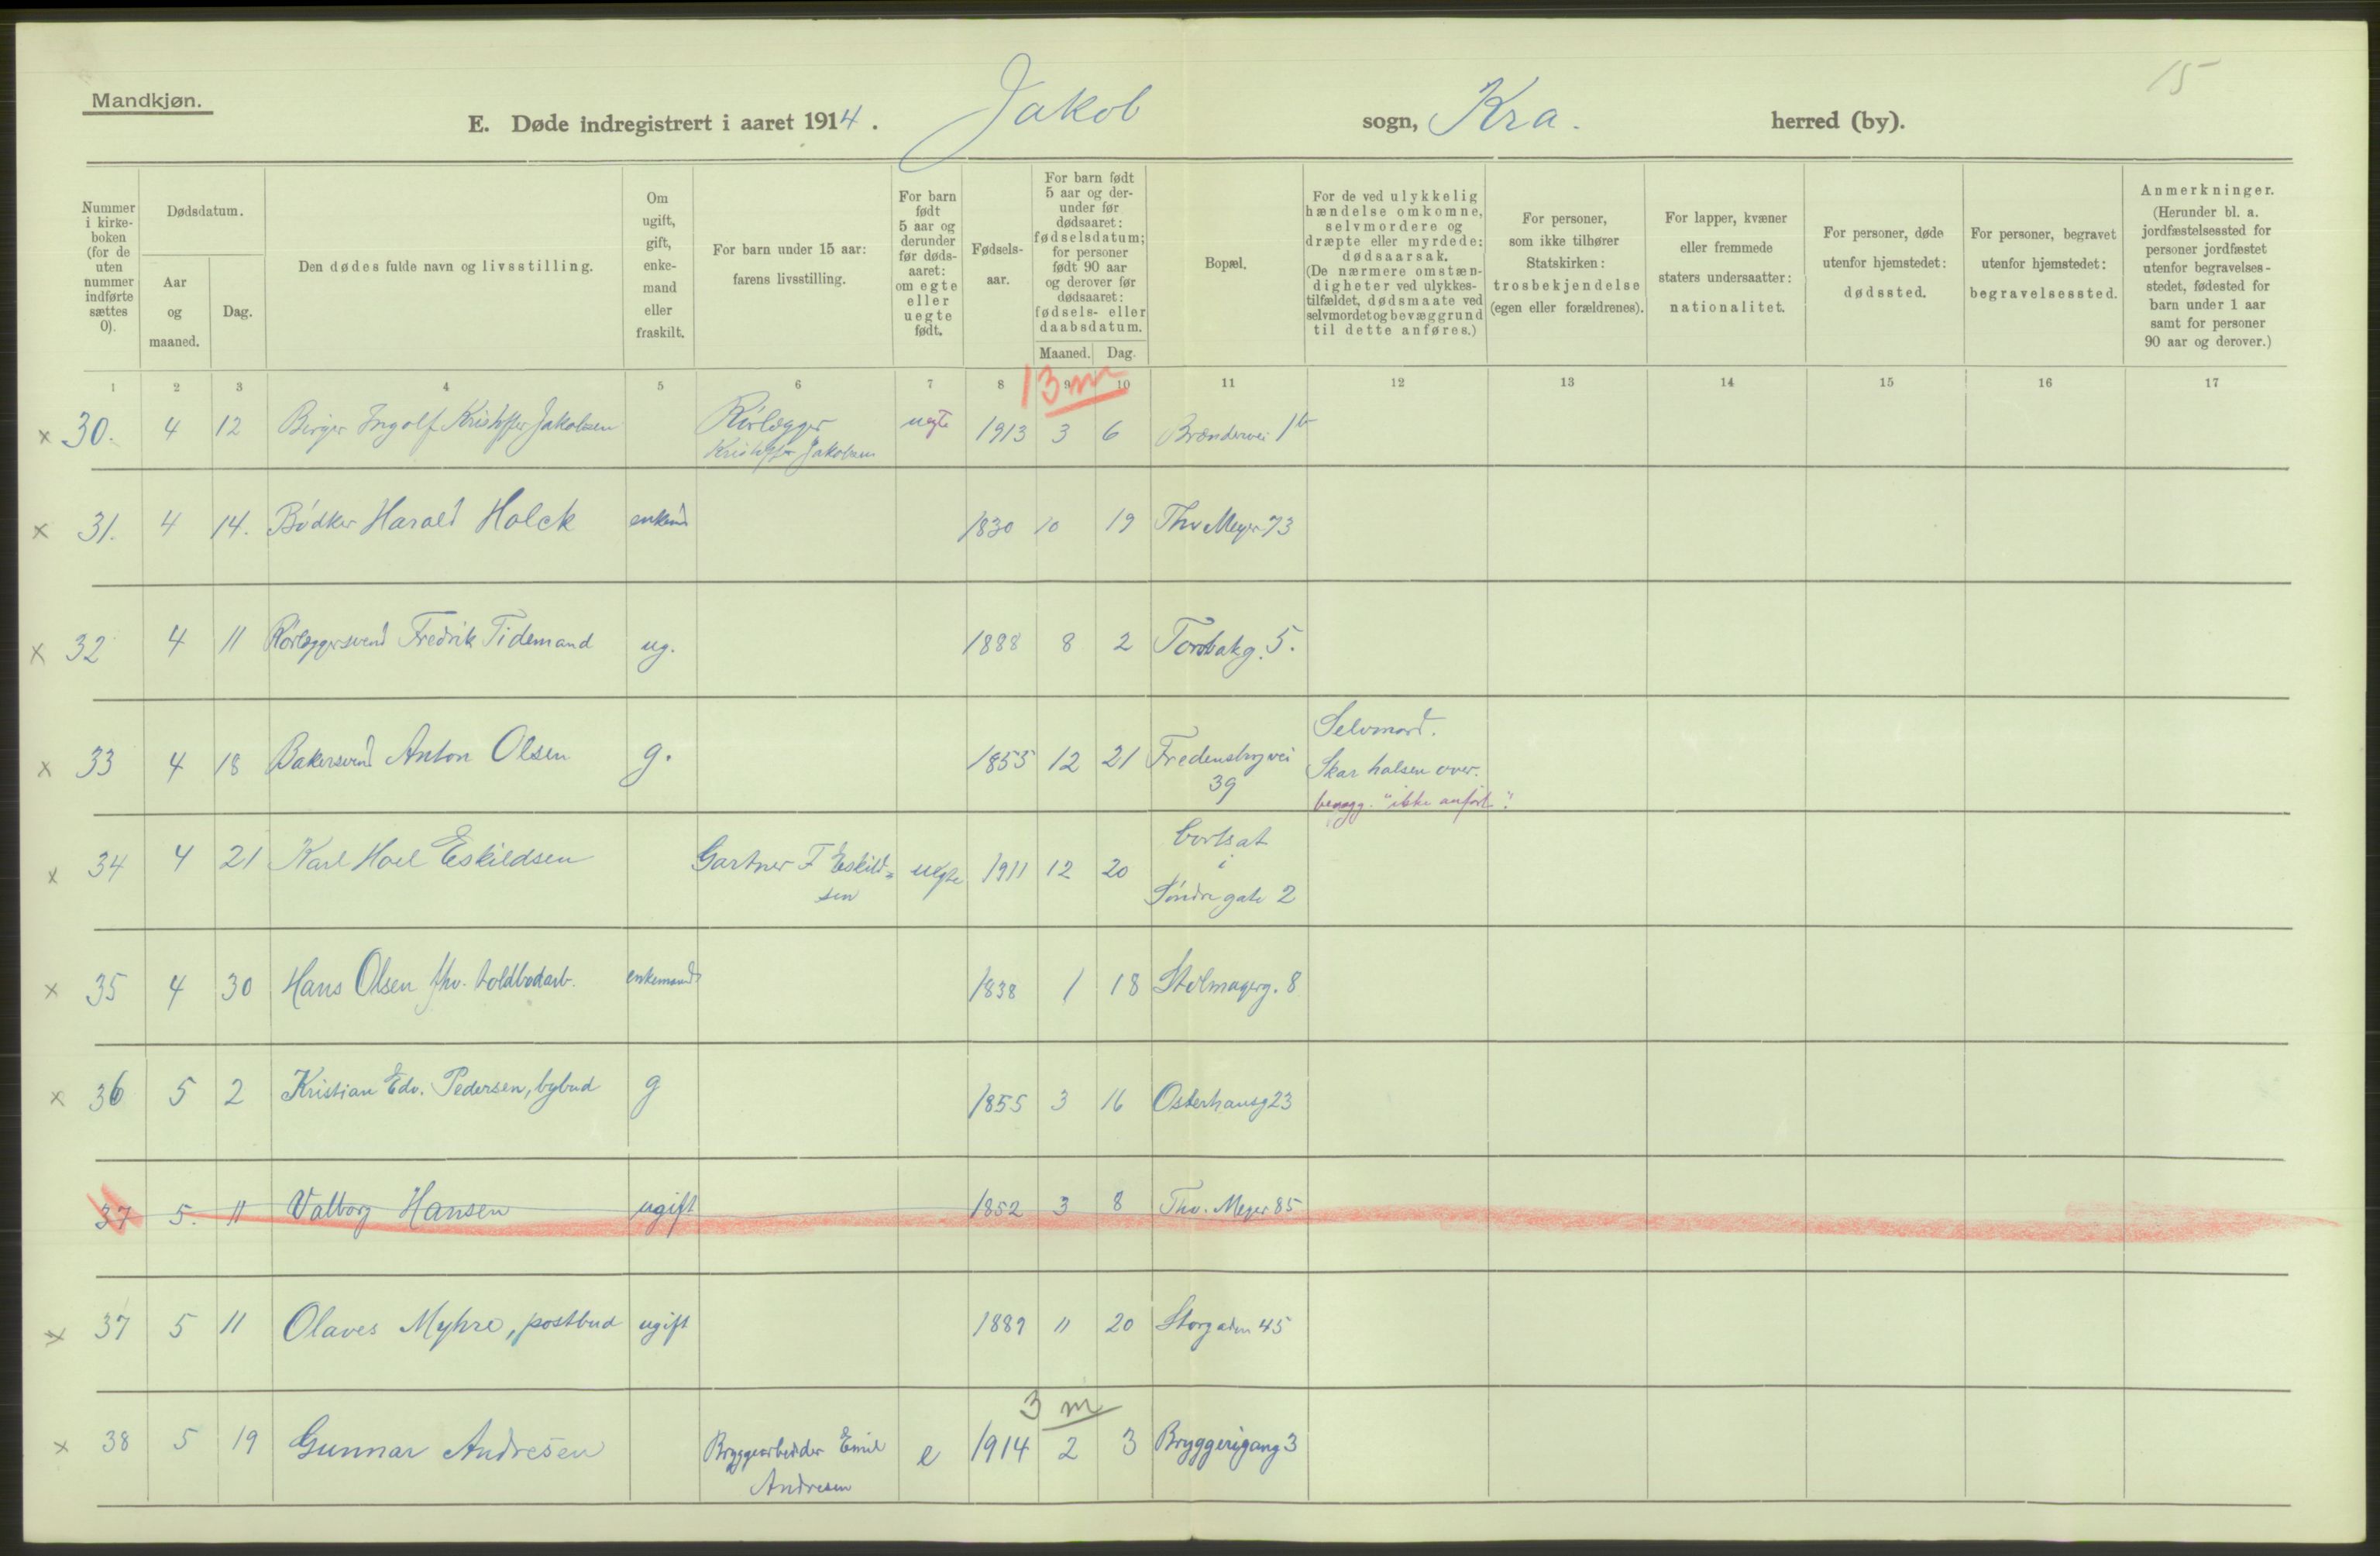 15
Mandkjøn.
E. Døde indregistrert i aaret 1914. Jakob sogn, Kra. herred (by).
Nummer i kirke- boken (for de uten nummer indførte sættes 0).
Dødsdatum.
Aar og maaned.
Dag.
Den dødes fulde navn og livsstilling.
Om ugift, gift, enke- mand eller fraskilt.
For barn under 15 aar: farens livsstilling.
For barn født 5 aar og derunder før døds- aaret: om egte eller uegte født.
Fødsels- aar.
For barn født 5 aar og der- under før dødsaaret: fødselsdatum; for personer født 90 aar og derover før dødsaaret: fødsels- eller daabsdatum.
Maaned. Dag.
Bopæl.
For de ved ulykkelig hændelse omkomne, selvmordere og dræpte eller myrdede: dødsaarsak. (De nærmere omstæn- digheter ved ulykkes- tilfældet, dødsmaate ved selvmordet og bevæggrund til dette anføres.)
For personer, som ikke tilhører Statskirken: trosbekjendelse (egen eller forældrenes).
For lapper, kvæner eller fremmede staters undersaatter: nationalitet.
For personer, døde utenfor hjemstedet: dødssted.
For personer, begravet utenfor hjemstedet: begravelsessted.
Anmerkninger. (Herunder bl. a. jordfæstelsessted for personer jordfæstet utenfor begravelses- stedet, fødested for barn under 1 aar samt for personer 90 aar og derover.)
1 2 3 4 5 6 7 8 9 10 11 12 13 14 15 16 17
13 m
x 30. 4 12 Birger Ingolf Kristoffer Jakobsen Rörlægger uegte 1913 3 6 Brændervei 1b
Kristoffer Jakobsen
x 31. 4 14. Bödker Harald Holck enkemd 1830 10 19 Thv Meyer 73
x 32 4 11 Rörlæggersvend Fredrik Tidemand ug. 1888 8 2 Torsbakg. 5.
Selvmord.
x 33 4 18 Bakersvend Anton Olsen g. 1855 12 21 Fredensborgvei Skar halsen over.
39 bevægg. "ikke anfört".
Bortsat
x 34 4 21 Karl Hoel Eskildsen Gartner F Eskild= uegte 1911 12 20 i
sen Söndregate 2
x 35 4 30 Hans Olsen fhv. toldbodarb. enkemand 1838 1 18 Stolmagerg. 8
x 36 5 2 Kristian Edv. Pedersen, bybud g 1855 3 16 Osterhausg 23
37 5. 11 Valborg Hansen ugift 1852 3 8 Thv. Meyer 85
x 37 5 11 Olaves Myhre, postbud ugift 1889 11 20 Storgaten 45
3 m
x 38 5 19 Gunnar Andresen Bryggearbeider Emil e 1914 2 3 Bryggerigang 3
Andresen